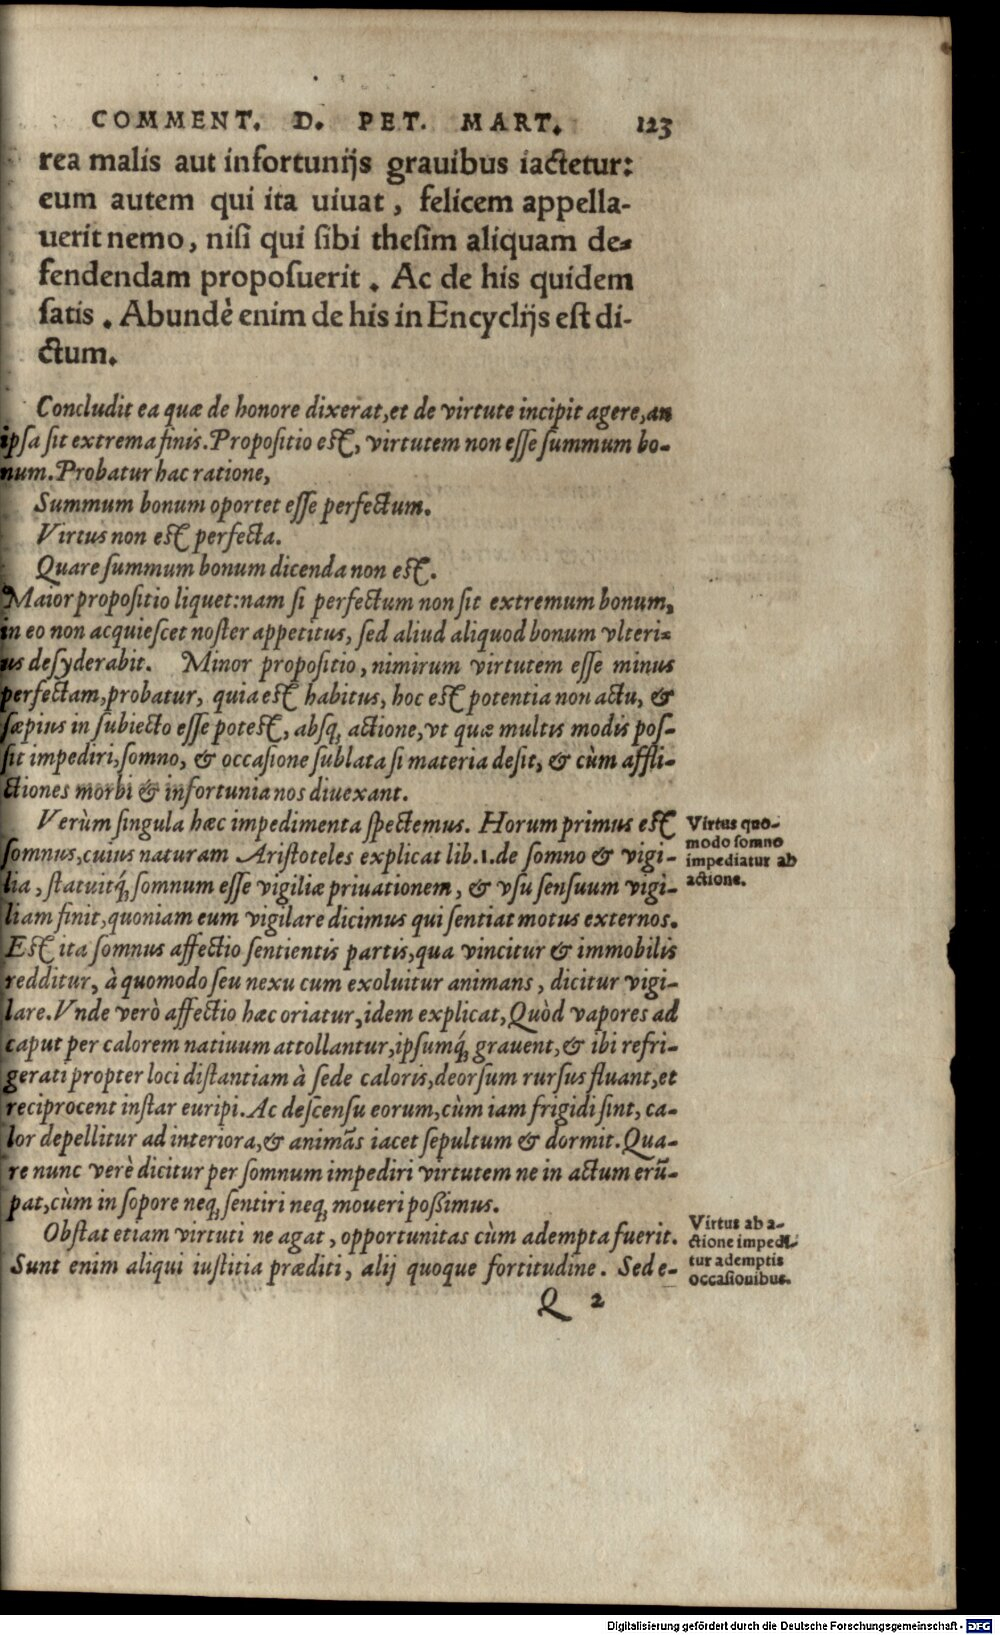 COMMENT. D. PET. MART. 123
rea malis aut infortunijs grauibus iactetur:
eum autem qui ita uiuat, felicem appella-
uerit nemo, nisi qui sibi thesim aliquam de-
fendendam proposuerit. Ac de his quidem
satis. Abundè enim de his in Encyclijs est di-
ctum.
Concludit ea quæ de honore dixerat, et de virtute incipit agere, an
ipsa sit extrema finis. Propositio est, virtutem non esse summum bo-
num. Probatur hac ratione,
Summum bonum oportet esse perfectum.
Virtus non est perfecta.
Quare summum bonum dicenda non est.
Maior propositio liquet: nam si perfectum non sit extremum bonum,
in eo non acquiescet noster appetitus, sed aliud aliquod bonum vlteri-
us desyderabit. Minor propositio, nimirum virtutem esse minus
perfectam, probatur, quia est habitus, hoc est potentia non actu, &
sæpius in subiecto esse potest, absq; actione, vt quæ multis modis pos-
sit impediri, somno, & occasione sublata si materia desit, & cùm affli-
ctiones morbi & infortunia nos diuexant.
Verùm singula hæc impedimenta spectemus. Horum primus est
somnus, cuius naturam Aristoteles explicat lib. 1. de somno & vigi-
lia, statuitq́; somnum esse vigiliæ priuationem, & vsu sensuum vigi-
liam finit, quoniam eum vigilare dicimus qui sentiat motus externos.
Est ita somnus affectio sentientis partis, qua vincitur & immobilis
redditur, à quomodo seu nexu cum exoluitur animans, dicitur vigi-
lare. Vnde verò affectio hæc oriatur, idem explicat, Quòd vapores ad
caput per calorem natiuum attollantur, ipsumq́; grauent, & ibi refri-
gerati propter loci distantiam à sede caloris, deorsum rursus fluant, et
reciprocent instar euripi. Ac descensu eorum, cùm iam frigidi sint, ca-
lor depellitur ad interiora, & animãs iacet sepultum & dormit. Qua-
re nunc verè dicitur per somnum impediri virtutem ne in actum erũ-
pat, cùm in sopore neq; sentiri neq; moueri possimus.
Virtus quo-
modo somno
impediatur ab
actione.
Obstat etiam virtuti ne agat, opportunitas cùm adempta fuerit.
Sunt enim aliqui iustitia præditi, alij quoque fortitudine. Sed e-
Virtus ab a-
ctione impedi-
tur ademptis
occasionibus.
Q 2
Digitalisierung gefördert durch die Deutsche Forschungsgemeinschaft - DFG